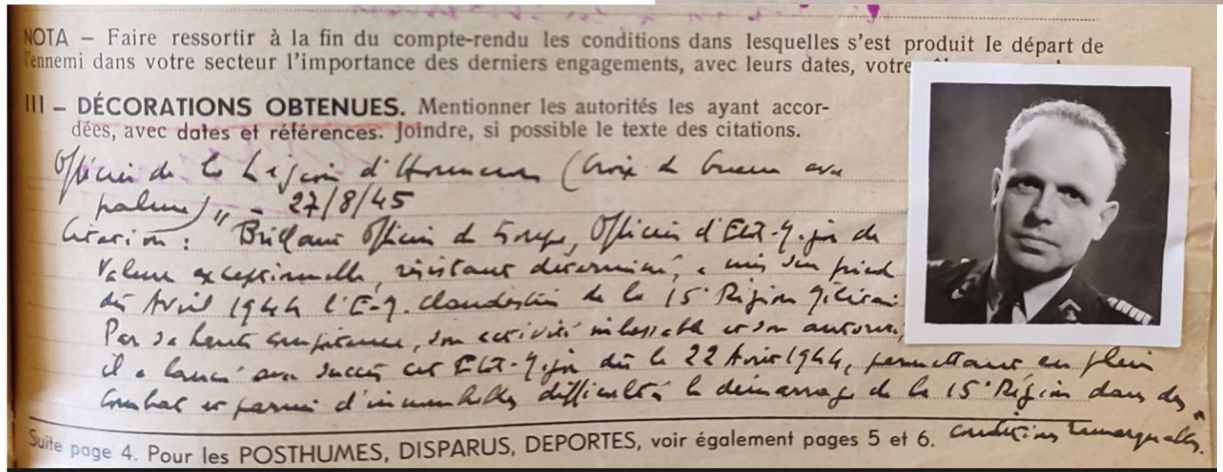 NOTA – Faire ressortir à la fin du compte-rendu les conditions dans lesquelles s'est produit le départ de
l'ennemi dans votre secteur l'importance des derniers engagements, avec leurs dates, votre
III – DÉCORATIONS OBTENUES. Mentionner les autorités les ayant accor-
dées, avec dates et références. Joindre, si possible le texte des citations.
Officier de la Légion d'Honneur (Croix de Guerre avec
palme) " – 27/8/45
Citation : "Brillant Officier de Troupe, Officier d'Etat-Major de
valeur exceptionnelle, résistant déterminé, a mis sur pied
dès Avril 1944 l'E-M. clandestin de la 15e Région Militaire
Par sa haute compétence, son activité inlassable et son autorité,
il a lancé avec succès cet Etat-Major dès le 22 Août 1944, permettant en plein
combat et parmi d'innombrables difficultés le démarrage de la 15e Région dans des
conditions remarquables."
Suite page 4. Pour les POSTHUMES, DISPARUS, DEPORTES, voir également pages 5 et 6.